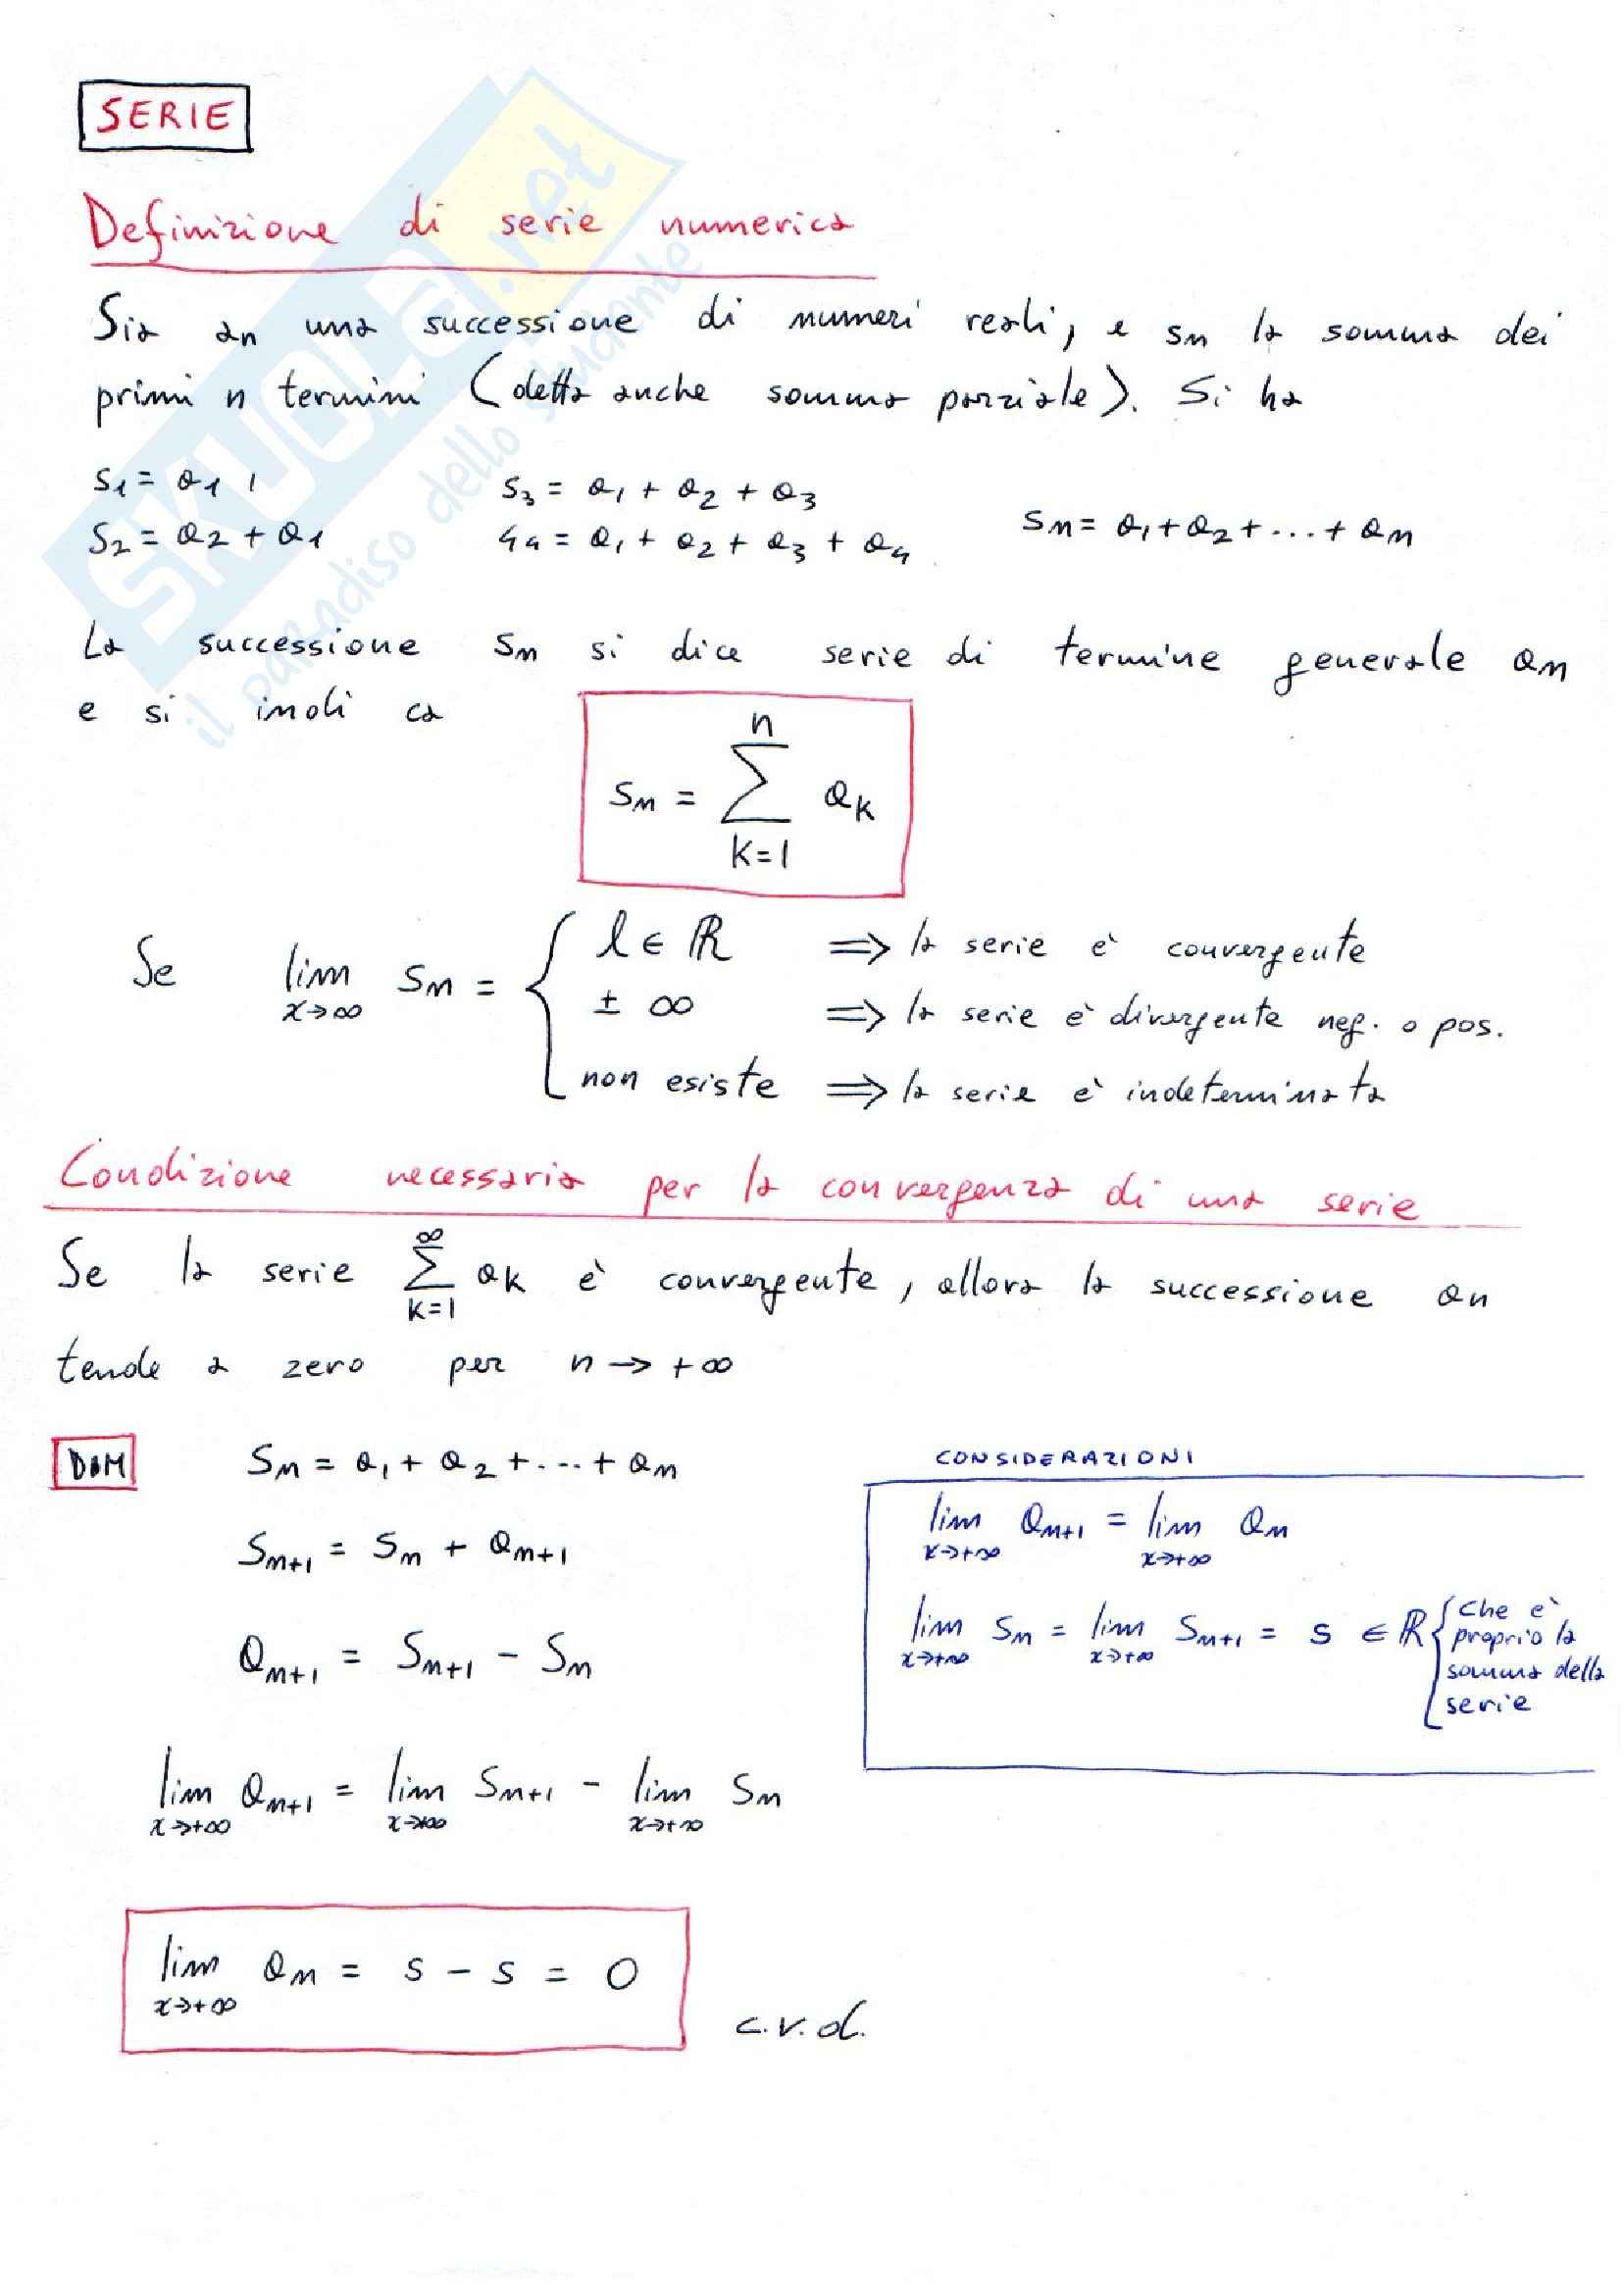 SERIE
Definizione di serie numerica
Sia an una successione di numeri reali, e sn la somma dei
primi n termini (detta anche somma parziale). Si ha
s1 = a1 ,
s2 = a2 + a1
s3 = a1 + a2 + a3
s4 = a1 + a2 + a3 + a4
sn = a1 + a2 + ... + an
La successione sn si dice serie di termine generale an
e si indica
sn = ∑ ak
n
k=1
Se lim sn = { l ∈ ℝ ⇒ la serie è convergente
x→∞ ± ∞ ⇒ la serie è divergente neg. o pos.
non esiste ⇒ la serie è indeterminata
Condizione necessaria per la convergenza di una serie
Se la serie ∞∑k=1 ak è convergente, allora la successione an
tende a zero per n → +∞
DIM
Sn = a1 + a2 + ... + an
Sn+1 = Sn + an+1
an+1 = Sn+1 - Sn
lim an+1 = lim Sn+1 - lim Sn
x→+∞ x→+∞ x→+∞
lim an = s - s = 0
x→+∞
c.v.d.
CONSIDERAZIONI
lim an+1 = lim an
x→+∞ x→+∞
lim Sn = lim Sn+1 = s ∈ ℝ { che è
x→+∞ x→+∞ proprio la
somma della
serie
SKUOLA.net
il paradiso dello studente